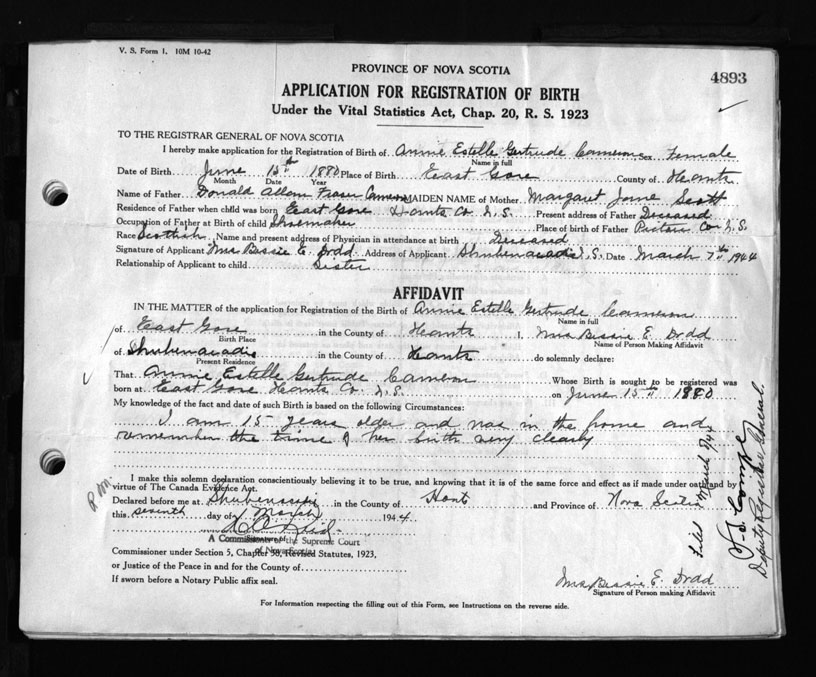 V. S. Form 1. 10M 10-42
4893
PROVINCE OF NOVA SCOTIA
APPLICATION FOR REGISTRATION OF BIRTH
Under the Vital Statistics Act, Chap. 20, R. S. 1923
TO THE REGISTRAR GENERAL OF NOVA SCOTIA
I hereby make application for the Registration of Birth of Annie Estelle Gertrude Cameron Sex Female
Name in full
Date of Birth June 15th 1880 Place of Birth East Gore County of Hants
Month Date Year
Name of Father Donald Allan Fraser Cameron MAIDEN NAME of Mother Margaret Jane Scott
Residence of Father when child was born East Gore Hants Co N.S. Present address of Father Deceased
Occupation of Father at Birth of child Shoemaker Place of birth of Father Pictou Co N.S.
Race Scottish Name and present address of Physician in attendance at birth Deceased
Signature of Applicant Mrs Bessie E. Dodd Address of Applicant Shubenacadie N.S. Date March 7th 1944
Relationship of Applicant to child Sister
AFFIDAVIT
IN THE MATTER of the application for Registration of the Birth of Annie Estelle Gertrude Cameron
Name in full
of East Gore in the County of Hants I, Mrs Bessie E. Dodd
Birth Place Name of Person Making Affidavit
of Shubenacadie in the County of Hants do solemnly declare:
Present Residence
That Annie Estelle Gertrude Cameron Whose Birth is sought to be registered was
born at East Gore Hants Co. N.S. on June 15th 1880
My knowledge of the fact and date of such Birth is based on the following Circumstances:
I am 15 years older and was in the home and
remember the time of her birth very clearly
I make this solemn declaration conscientiously believing it to be true, and knowing that it is of the same force and effect as if made under oath and by
virtue of The Canada Evidence Act.
Declared before me at Shubenacadie in the County of Hants and Province of Nova Scotia
this seventh day of March 1944
A Commissioner of the Supreme Court
of Nova Scotia
Commissioner under Section 5, Chapter 38, Revised Statutes, 1923,
or Justice of the Peace in and for the County of
If sworn before a Notary Public affix seal.
Mrs Bessie E. Dodd
Signature of Person making Affidavit
For Information respecting the filling out of this Form, see Instructions on the reverse side.
Filed March 9/44
Deputy Registrar General.